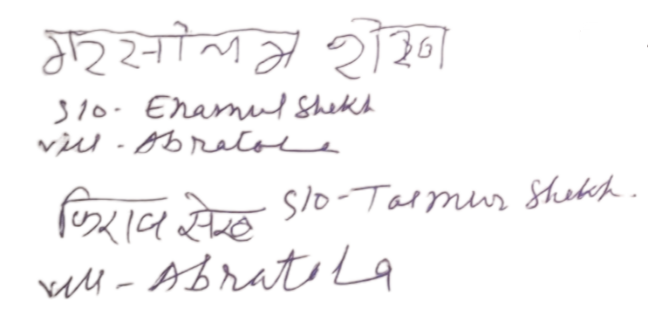 मरसोलम शेख
S/O- Enamul Shekh
vill - Abratola
फिराव सेख S/O-Taemur Shekh.
vill - Abratola